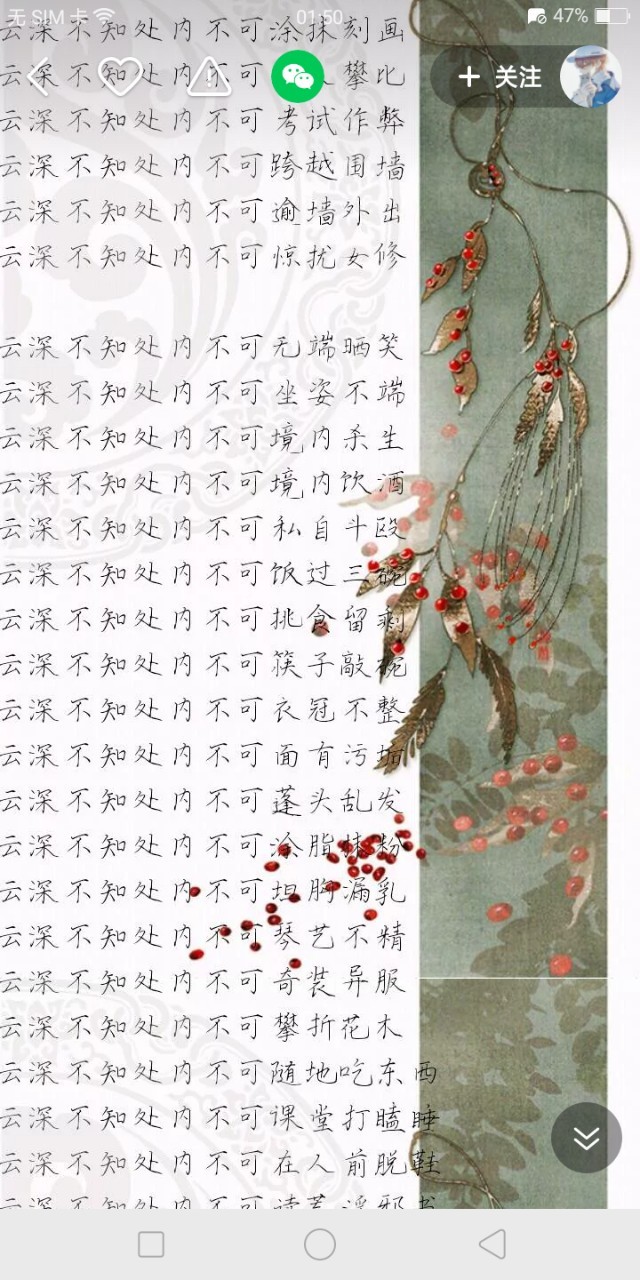 无 SIM 卡 01:50 47%
云深不知处内不可涂抹刻画
云深不知处内不可 攀比
+ 关注
云深不知处内不可考试作弊
云深不知处内不可跨越围墙
云深不知处内不可逾墙外出
云深不知处内不可惊扰女修
云深不知处内不可无端晒笑
云深不知处内不可坐姿不端
云深不知处内不可境内杀生
云深不知处内不可境内饮酒
云深不知处内不可私自斗殴
云深不知处内不可饭过三碗
云深不知处内不可挑食留剩
云深不知处内不可筷子敲碗
云深不知处内不可衣冠不整
云深不知处内不可面有污垢
云深不知处内不可蓬头乱发
云深不知处内不可涂脂抹粉
云深不知处内不可坦胸漏乳
云深不知处内不可琴艺不精
云深不知处内不可奇装异服
云深不知处内不可攀折花木
云深不知处内不可随地吃东西
云深不知处内不可课堂打瞌睡
云深不知处内不可在人前脱鞋
云深不知处内不可